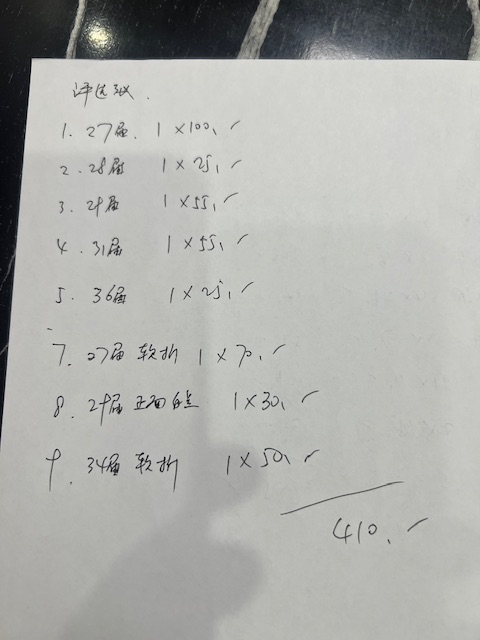 评选张.
1. 27届. 1×100, ✓
2. 28届 1×25, ✓
3. 29届 1×55, ✓
4. 31届 1×55, ✓
5. 36届 1×25, ✓
7. 27届 软折 1×70, ✓
8. 29届 正面白点 1×30, ✓
9. 34届 软折 1×50, ✓
410, ✓